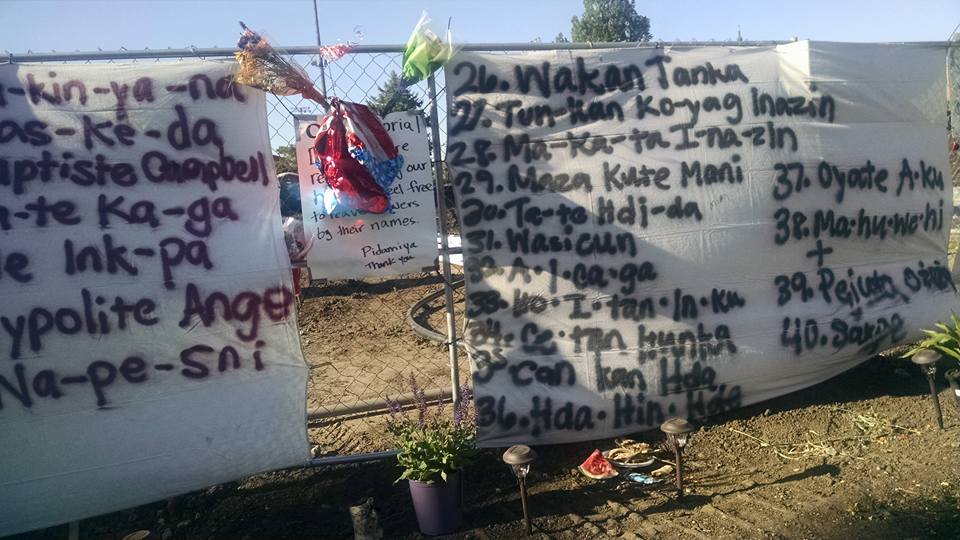 -kin-ya-na
as-ke-da
aptiste Campbell
-te Ka-ga
e Ink-pa
ypolite Ange
Na-pe-sni
our
feel free
to leave flowers
by their names.
Pidamiya
Thank you
26. Wakan Tanka
27. Tun-kan Ko-yag Inazin
28. Ma-ka-ta I-na-zin
29. Maza Kute Mani
30. Ta-te Hdi-da
31. Wasicun
32. A-i-ca-ga
33. Ho-I-tan-In-ku
34. Ce-tan Hunka
35. Can kan Hda
36. Hda-Hin-Hda
37. Oyate A-ku
38. Ma-hu-we-hi
+
39. Pejuta
40. Sakpe